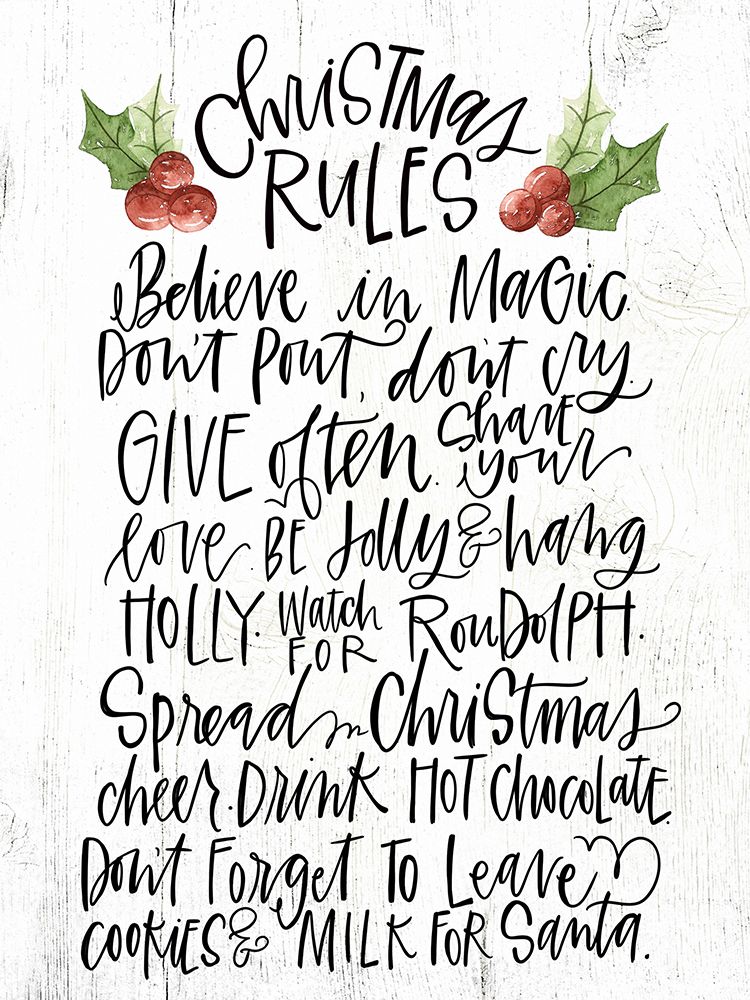 Christmas
RULES
Believe in MaGic.
Don't Pout, don't cry.
GIVE often. Share your
love. BE Jolly & hang
HOLLY. Watch FOR RouDolPH.
Spread Christmas
cheer. Drink HOT Chocolate.
Don't Forget To Leave
COOKIES & MILK FOR Santa.